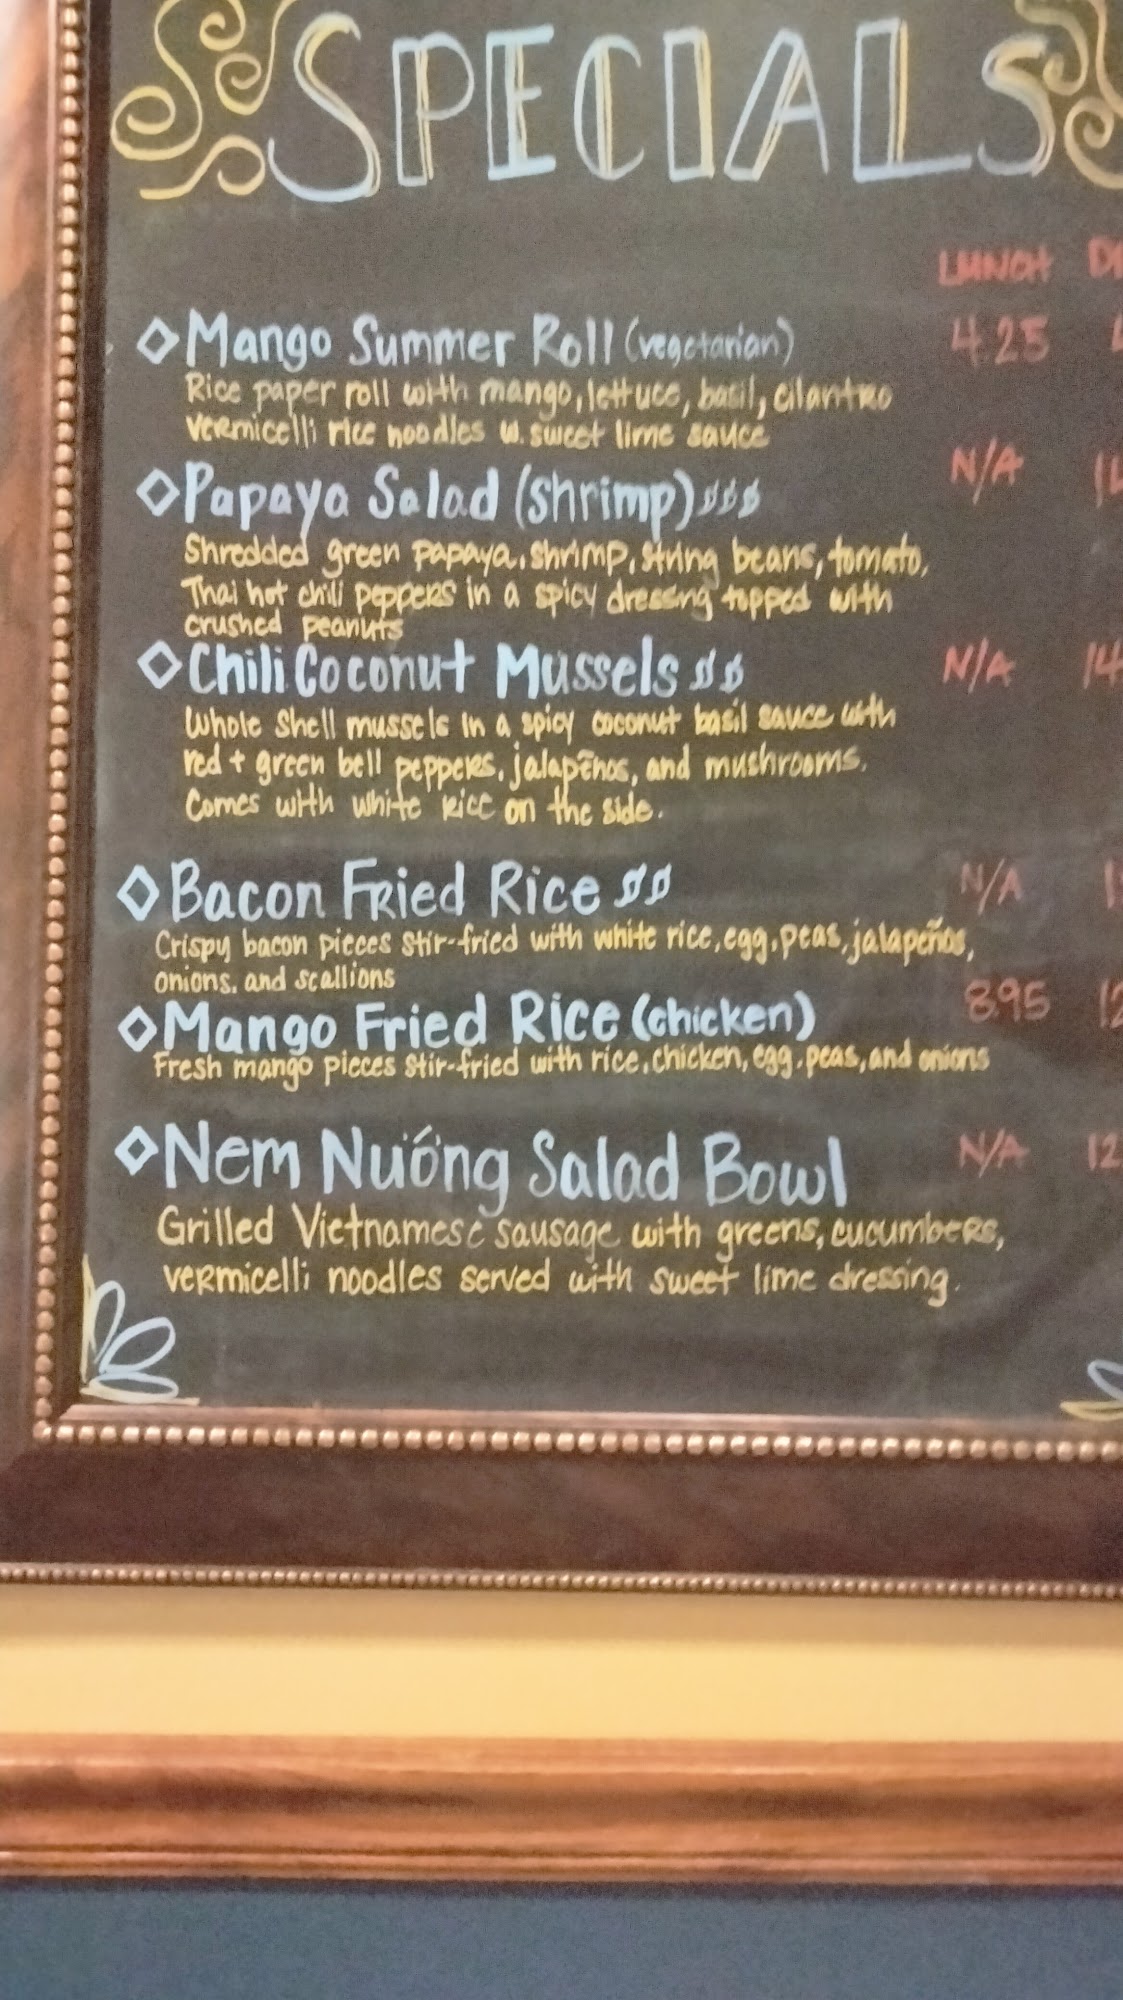 SPECIALS
LUNCH
Mango Summer Roll (vegetarian) 4.25
Rice paper roll with mango, lettuce, basil, cilantro
vermicelli rice noodles w. sweet lime sauce
Papaya Salad (shrimp) N/A
Shredded green papaya, shrimp, string beans, tomato,
Thai hot chili peppers in a spicy dressing topped with
crushed peanuts
Chili Coconut Mussels N/A 14
Whole Shell mussels in a spicy coconut basil sauce with
red + green bell peppers, jalapeños, and mushrooms.
Comes with white rice on the side.
Bacon Fried Rice N/A
Crispy bacon pieces stir-fried with white rice, egg, peas, jalapeños,
onions, and scallions
Mango Fried Rice (chicken) 8.95 12
Fresh mango pieces stir-fried with rice, chicken, egg, peas, and onions
Nem Nướng Salad Bowl N/A 12
Grilled Vietnamese sausage with greens, cucumbers,
vermicelli noodles served with sweet lime dressing.